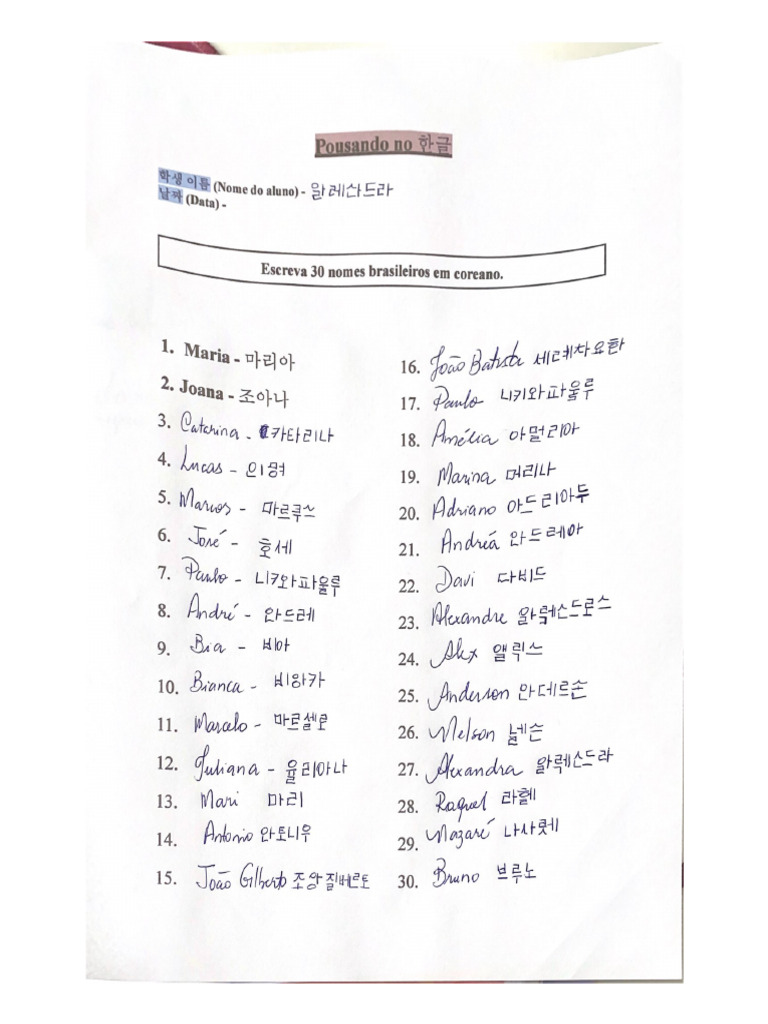 Pousando no 한글
학생 이름 (Nome do aluno) - 알레산드라
날짜 (Data) -
Escreva 30 nomes brasileiros em coreano.
1. Maria - 마리아
2. Joana - 조아나
3. Catarina - 카타리나
4. Lucas -
5. Marcos - 마르쿠스
6. José - 호세
7. Paulo - 니키와파울루
8. André - 안드레
9. Bia - 비아
10. Bianca - 비앙카
11. Marcelo - 마르셀로
12. Juliana - 율리아나
13. Mari 마리
14. Antonio 안토니우
15. João Gilberto 조앙질베르토
16. João Batista 세례자요한
17. Paulo 니키와파울루
18. Amélia 아멀리아
19. Marina 머리나
20. Adriano 아드리아두
21. Andréa 안드레아
22. Davi 다비드
23. Alexandre 알렉산드로스
24. Alex 앨릭스
25. Anderson 안데르손
26. Nelson 넬슨
27. Alexandra 알렉산드라
28. Raquel 라헬
29. Nazaré 나사렛
30. Bruno 브루노